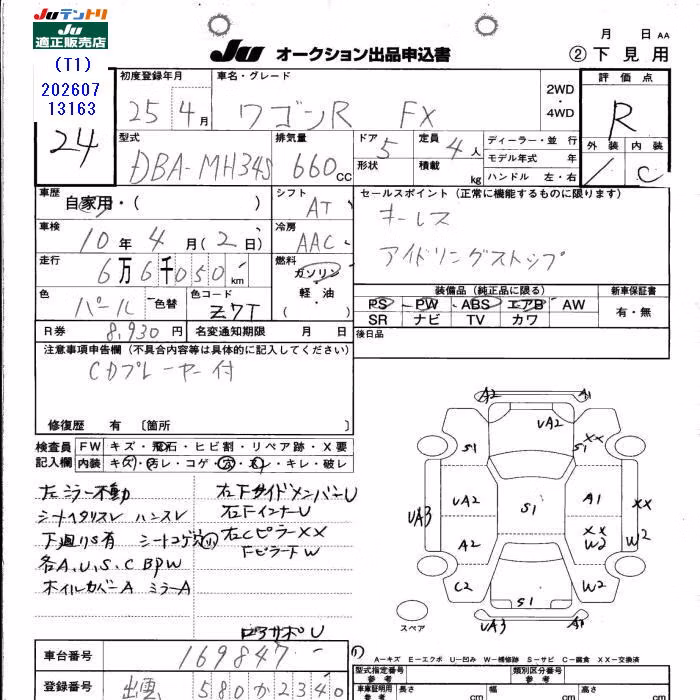 Juテントリ
Ju
適正販売店
(T1)
202607
13163
24
Ju オークション出品申込書
月 日 AA
② 下見用
初度登録年月
25 4月
車名・グレード
ワゴンR FX
2WD
・
4WD
評価点
R
外装 内装
/ C
型式
DBA-MH34S
排気量
660 CC
ドア
5
定員
4人
形状
積載
kg
ディーラー・並行
モデル年式 年
ハンドル 左・右
車歴
自家用・( )
シフト
AT
セールスポイント (正常に機能するものに限ります)
キーレス
アイドリングストップ
車検
10年4月(2日)
冷房
AAC
走行
6万6千050km
燃料
ガソリン
軽・油
( ・ )
色
パール
色替
色コード
Z7T
装備品 (純正品に限る)
PS PW ABS エアB AW
SR ナビ TV カワ
新車保証書
有・無
R券 8,930円
名変通知期限 月 日
後日品
注意事項申告欄 (不具合内容等は具体的に記入してください)
CDプレーヤー付
修復歴 有 〔箇所 〕
検査員
記入欄
FW キズ・飛石・ヒビ割・リペア跡・X要
内装 キズ・汚レ・コゲ・穴・スレ・キレ・破レ
左ミラー不動
シートヘタリスレ ハンスレ
下廻りS有 シートコゲ穴
各A,U,S,C BPW
ホイルカバーA ミラーA
右下サイドメンバーU
右下インナーU
右CピラーXX
FピラーFW
ロアサポU
A2 A1
UA2
S1 S1 XX
UA3 UA2 S1 A1 XX
A2 XX W2 W2
C2 S1 W2
UA3 A1
スペア
A-キズ E-エクボ U-凹み W-補修跡 S-サビ C-腐食 XX-交換済
車台番号 169847
登録番号 出雲 580か2340
型式指定番号
参考
類別区分番号
参考
車庫証明用
参考
長さ
cm
幅
cm
高さ
cm